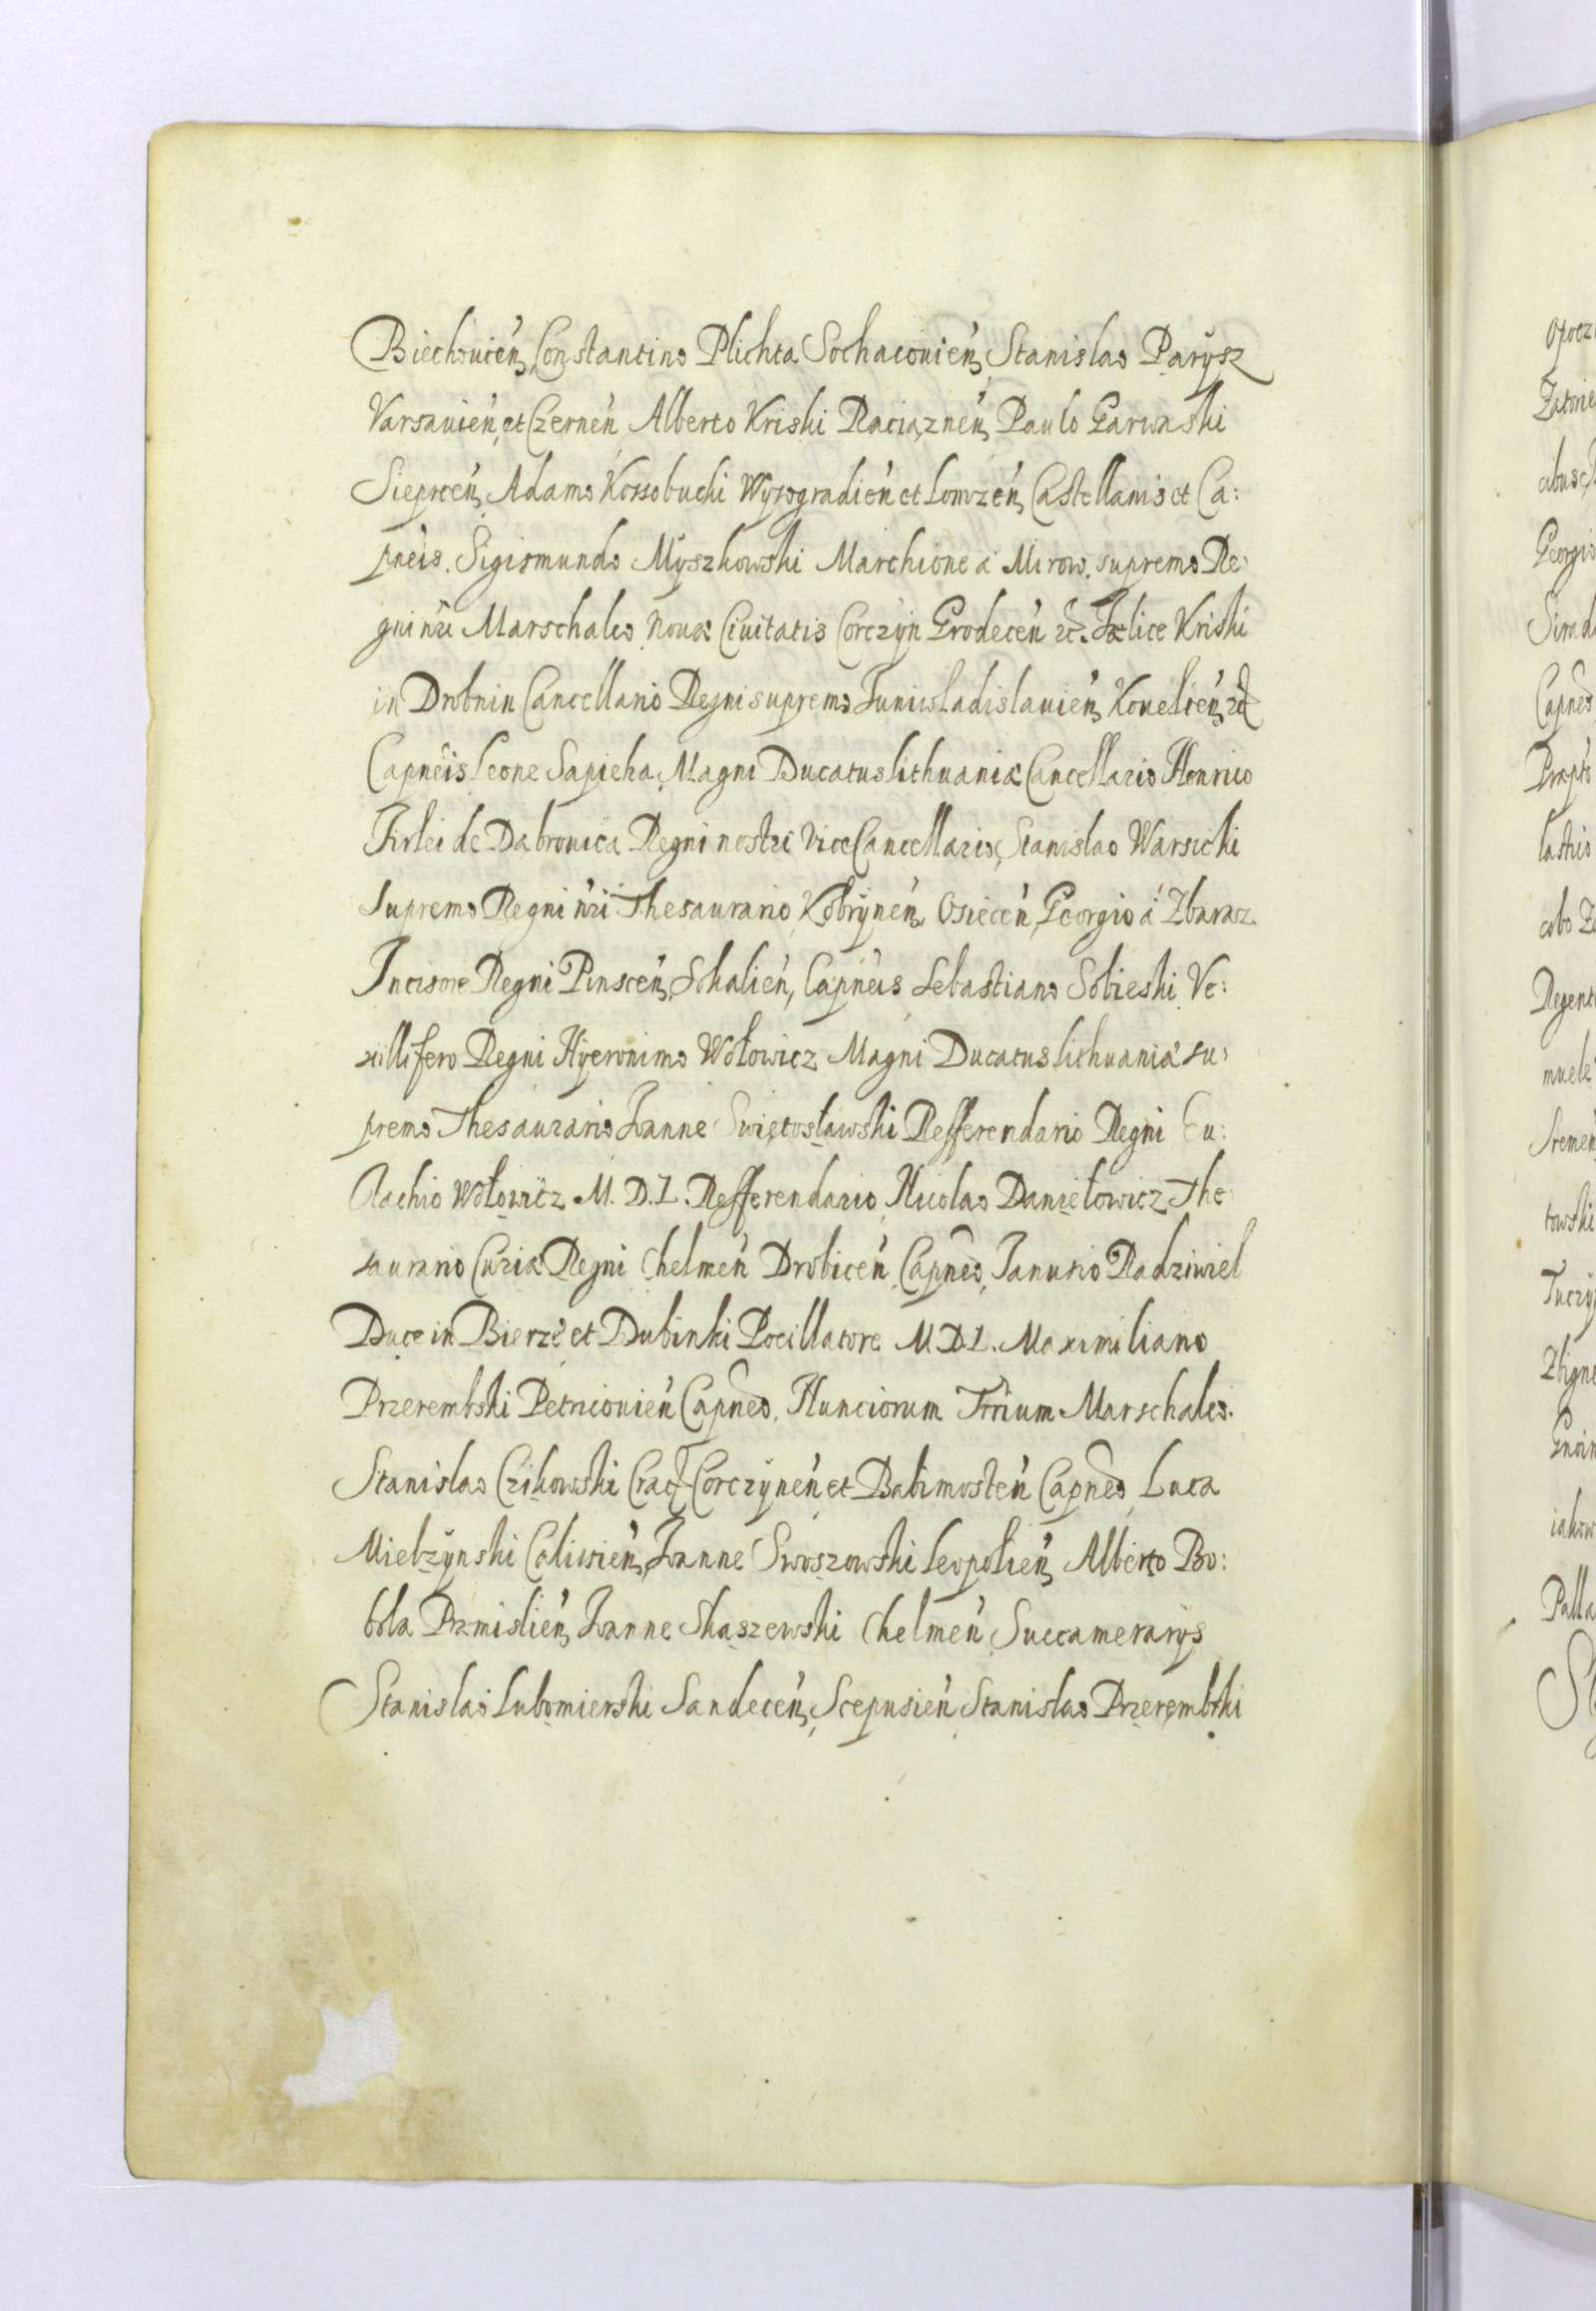 Biechouień, Constantino Plichta Sochaconień, Stanislao Parÿsz
Varsauień, et Czerneń Alberto Kriski Raciązneń, Paulo Garwaski
Sieprceń, Adamo Kossobucki Wyssogradień et Lomzeń, Castellanis et Ca:
pneis. Sigismundo Mÿszkowski Marchione á Mirow. supremo Re:
gni nri Marschalco Nouæ Ciuitatis Corczÿn Grodeceń etc. Fælice Kriski
in Drobnin Cancellario Regni supremo Juniwladislauień, Kouelień, etc
Capneis Leone Sapieha, Magni Ducatus Lithuaniæ Cancellario Henrico
Firlei de Dabrouica Regni nostri ViceCancellario, Stanislao Warsicki
Supremo Regni nri Thesaurario, Kobrÿneń, Osieceń, Georgio á Zbaraz
Incisore Regni Pinsceń, Sokalień, Capneis Sebastiano Sobieski Ve:
xillifero Regni Hÿeronimo Wołowicz Magni Ducatus Lithuaniæ su:
premo Thesaurario Joanne Swiętosławski Refferendario Regni Eu:
stachio Wołowicz M. D. L. Refferendario, Nicolao Daniełowicz The:
saurario Curiæ Regni Chelmeń Drobiceń Capneo, Janusio Radziwiel
Duce in Bierze et Dubinki Pocillatore M D L. Maximiliano
Przerembski Petricouień Capneo. Nunciorum Trrium Marschalco.
Stanislao Czikowski Crac Corczÿneń et Babimosteń Capneo, Luca
Mielzÿnski Calisień, Joanne Swoszowski Leopolień, Alberto Bo:
bola Prmislień, Joanne Skaszewski Chelmeń Succamerarÿs
Stanislao Lubomierski Sandeceń, Scepusień Stanislao Przerembski